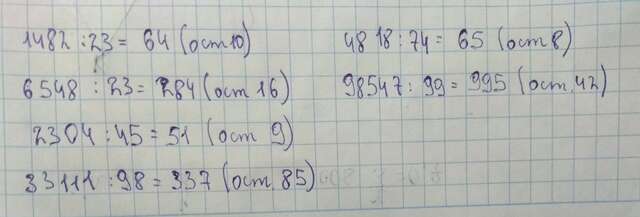 1482 : 23 = 64 (ост 10)
6548 : 23 = 284 (ост 16)
2304 : 45 = 51 (ост 9)
33111 : 98 = 337 (ост. 85)
4818 : 74 = 65 (ост 8)
98547 : 99 = 995 (ост. 42)